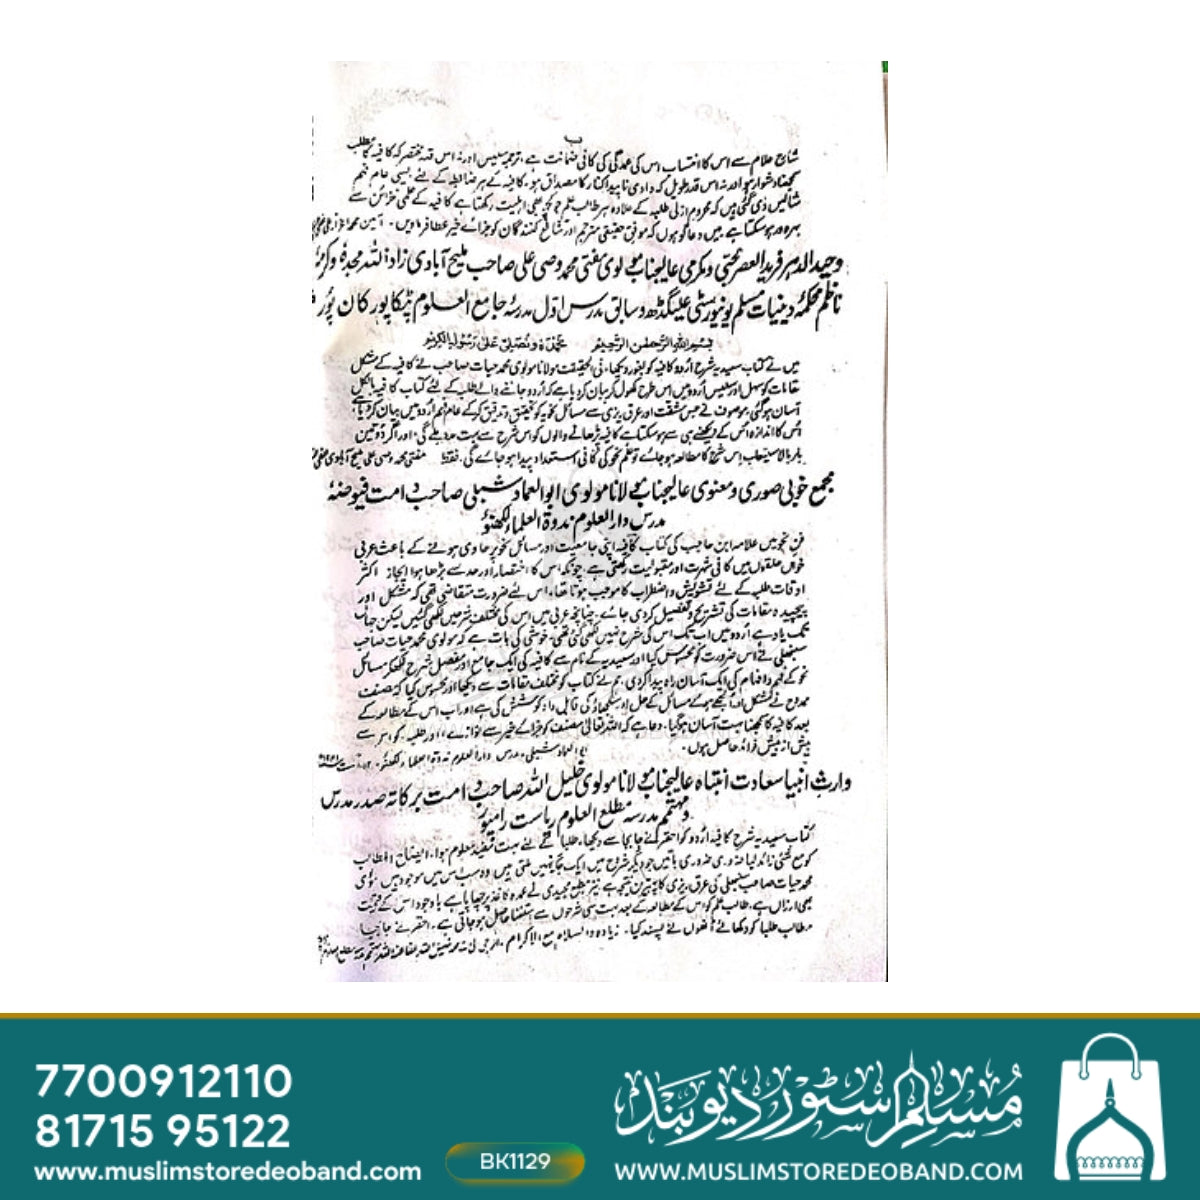 ب
شارح علام سے اس کا انتساب اس کی عمدگی کی کافی ضمانت ہے، ترجمہ سلیس اور نہ اس قدر مختصر کہ کافیہ کا مطلب
سمجھنا دشوار ہو اور نہ اس قدر طویل کہ وادی ناپیدا کنار کا مصداق ہو، کافیہ کے ہر ضابطہ کے لئے ایسی عام فہم
مثالیں دی گئی ہیں کہ محروم ازلی طلبہ کے علاوہ ہر طالب علم جو کچھ بھی اہلیت رکھتا ہے کافیہ کے علمی خزائن سے
بہرہ ور ہو سکتا ہے میں دعا گو ہوں کہ موفق حقیقی مترجم اور شائع کنندگان کو جزائے خیر عطا فرماویں۔ آمین
وحید الدہر فرید العصر مجتبیٰ و مکرمی عالیجناب مولوی مفتی محمد وصی علی صاحب ملیح آبادی زاد اللہ مجدہ
ناظم محکمۂ دینیات مسلم یونیورسٹی علیگڈھ و سابق مدرس اول مدرسہ جامع العلوم پٹکاپور کان پور
بسم اللہ الرحمن الرحیم نحمدہ و نصلی علی رسولہ الکریم
میں نے کتاب سعیدیہ شرح اردو کافیہ کو بغور دیکھا، فی الحقیقت مولانا مولوی محمد حیات صاحب نے کافیہ کے مشکل
مقامات کو سہل اور سلیس اردو میں اس طرح کھول کر بیان کر دیا ہے کہ اردو جاننے والے طلبہ کے لئے کتاب کافیہ بالکل
آسان ہو گئی، موصوف نے جس مشقت اور عرق ریزی سے مسائل نحویہ کو تحقیق و تدقیق کرکے عام فہم اردو میں بیان کر دیا ہے،
اس کا اندازہ اس کے دیکھنے ہی سے ہو سکتا ہے کافیہ پڑھانے والوں کو اس شرح سے بہت مدد ملے گی، اور اگر دو تین
بار بالاستیعاب اس شرح کا مطالعہ ہو جائے تو علم نحو کی کافی استعداد پیدا ہو جائے گی۔ فقط مفتی محمد وصی علی ملیح آبادی
مجمع خوبی صوری و معنوی عالیجناب مولانا مولوی ابو العماد شبلی صاحب دامت فیوضہ
مدرس دار العلوم ندوۃ العلماء لکھنؤ
فن نحو میں علامہ ابن حاجب کی کتاب کافیہ اپنی جامعیت اور مسائل نحو پر حاوی ہونے کے باعث عربی
خواں حلقوں میں کافی شہرت اور مقبولیت رکھتی ہے، چونکہ اس کا اختصار اور حد سے بڑھا ہوا ایجاز اکثر
اوقات طلبہ کے لئے تشویش و اضطراب کا موجب ہوتا تھا، اس لئے ضرورت متقاضی تھی کہ مشکل اور
پیچیدہ مقامات کی تشریح و تفصیل کر دی جائے۔ چنانچہ عربی میں اس کی مختلف شرحیں لکھی گئیں لیکن جہاں
تک یاد ہے اردو میں اب تک اس کی شرح نہیں لکھی گئی تھی۔ خوشی کی بات ہے کہ مولوی محمد حیات صاحب
سنبھلی نے اس ضرورت کو محسوس کیا اور سعیدیہ کے نام سے کافیہ کی ایک جامع اور مفصل شرح لکھکر مسائل
نحو کے فہم و افہام کی ایک آسان راہ پیدا کر دی۔ ہم نے کتاب کو مختلف مقامات سے دیکھا اور محسوس کیا کہ مصنف
ممدوح نے مشکل اور الجھے ہوئے مسائل کے حل اور سلجھاؤ کی قابل داد کوشش کی ہے اور اب اس کے مطالعہ کے
بعد کافیہ کا سمجھنا بہت آسان ہو گیا۔ دعا ہے کہ اللہ تعالیٰ مصنف کو جزائے خیر سے نوازے، اور طلبہ کو اس سے
بیش از بیش فوائد حاصل ہوں۔ ابو العماد شبلی مدرس دار العلوم ندوۃ العلماء لکھنؤ
وارث انبیا سعادت انتباہ عالیجناب مولانا مولوی خلیل اللہ صاحب دامت برکاتہ صدر مدرس
و مہتمم مدرسہ مطلع العلوم ریاست رامپور
کتاب سعیدیہ شرح کافیہ اردو کو احقر نے جا بجا سے دیکھا، طلبا کے لئے بہت مفید معلوم ہوا، ایضاح المطالب
محمد حیات صاحب سنبھلی کی عرق ریزی کا بہترین نتیجہ ہے نیز مطبع مجیدی نے عمدہ کاغذ پر چھاپا ہے باوجود اس کے قیمت
بھی ارزاں ہے، طالب علم کو اس کے مطالعہ کے بعد بہت سی شرحوں سے استغنا حاصل ہو جاتی ہے۔ احقر نے
مطالب طلبا کو دکھائے انھوں نے پسند کیا۔ زیادہ والسلام مع الاکرام۔
7700912110
81715 95122
www.muslimstoredeoband.com
BK1129
مسلم سٹور دیوبند
WWW.MUSLIMSTOREDEOBAND.COM